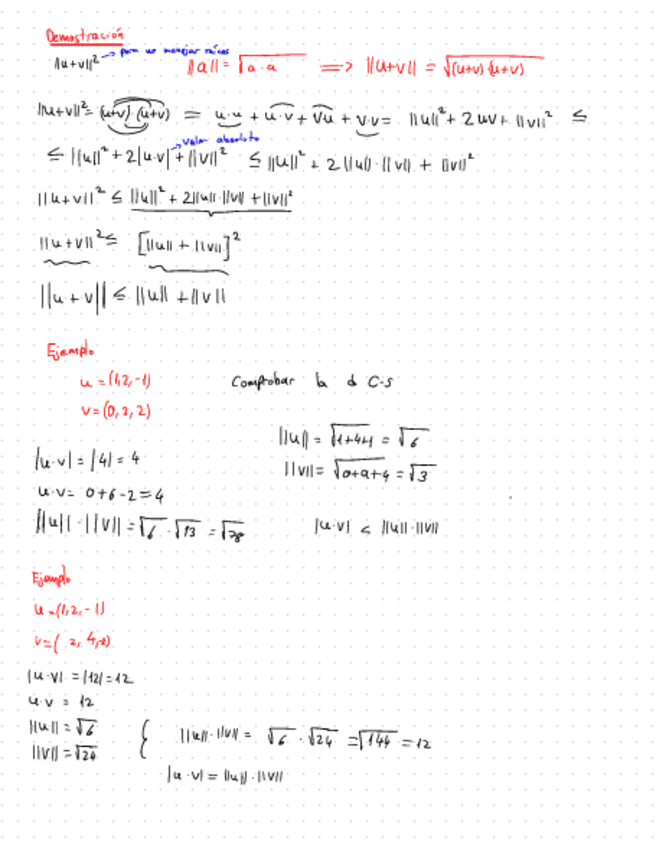 Demostración
||u+v||² → para no manejar raíces ||a|| = √a·a ⟹ ||u+v|| = √(u+v)·(u+v)
||u+v||² = (u+v)·(u+v) = u·u + u·v + vu + v·v = ||u||² + 2uv + ||v||² ≤
→ valor absoluto
≤ ||u||² + 2|u·v| + ||v||² ≤ ||u||² + 2||u||·||v|| + ||v||²
||u+v||² ≤ ||u||² + 2||u||·||v|| + ||v||²
||u+v||² ≤ [||u|| + ||v||]²
||u+v|| ≤ ||u|| + ||v||
Ejemplo
u = (1,2,-1) Comprobar la d C-S
v = (0,3,2)
||u|| = √1+4+1 = √6
|u·v| = |4| = 4
||v|| = √0+9+4 = √3
u·v = 0+6-2 = 4
||u||·||v|| = √6·√13 = √78 |u·v| < ||u||·||v||
Ejemplo
u = (1,2,-1)
v = ( 2, 4, )
|u·v| = |12| = 12
u·v = 12
||u|| = √6
||v|| = √24 { ||u||·||v|| = √6·√24 = √144 = 12
|u·v| = ||u||·||v||